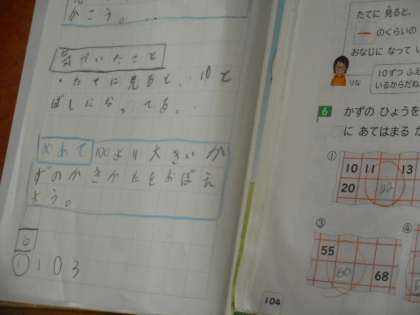 かこう。
気づいたこと
・たてに見ると、10と
ばしになってる。
めあて 100より大きいか
ずのかきかたをおぼえ
よう。
6
① 103
たてに見ると、
のくらいの
おなじになって
りな
10ずつふえ
いるからだね
6 かずの ひょうを
に あてはまる
①
10 11 13
20
③
55
60 68
④
104